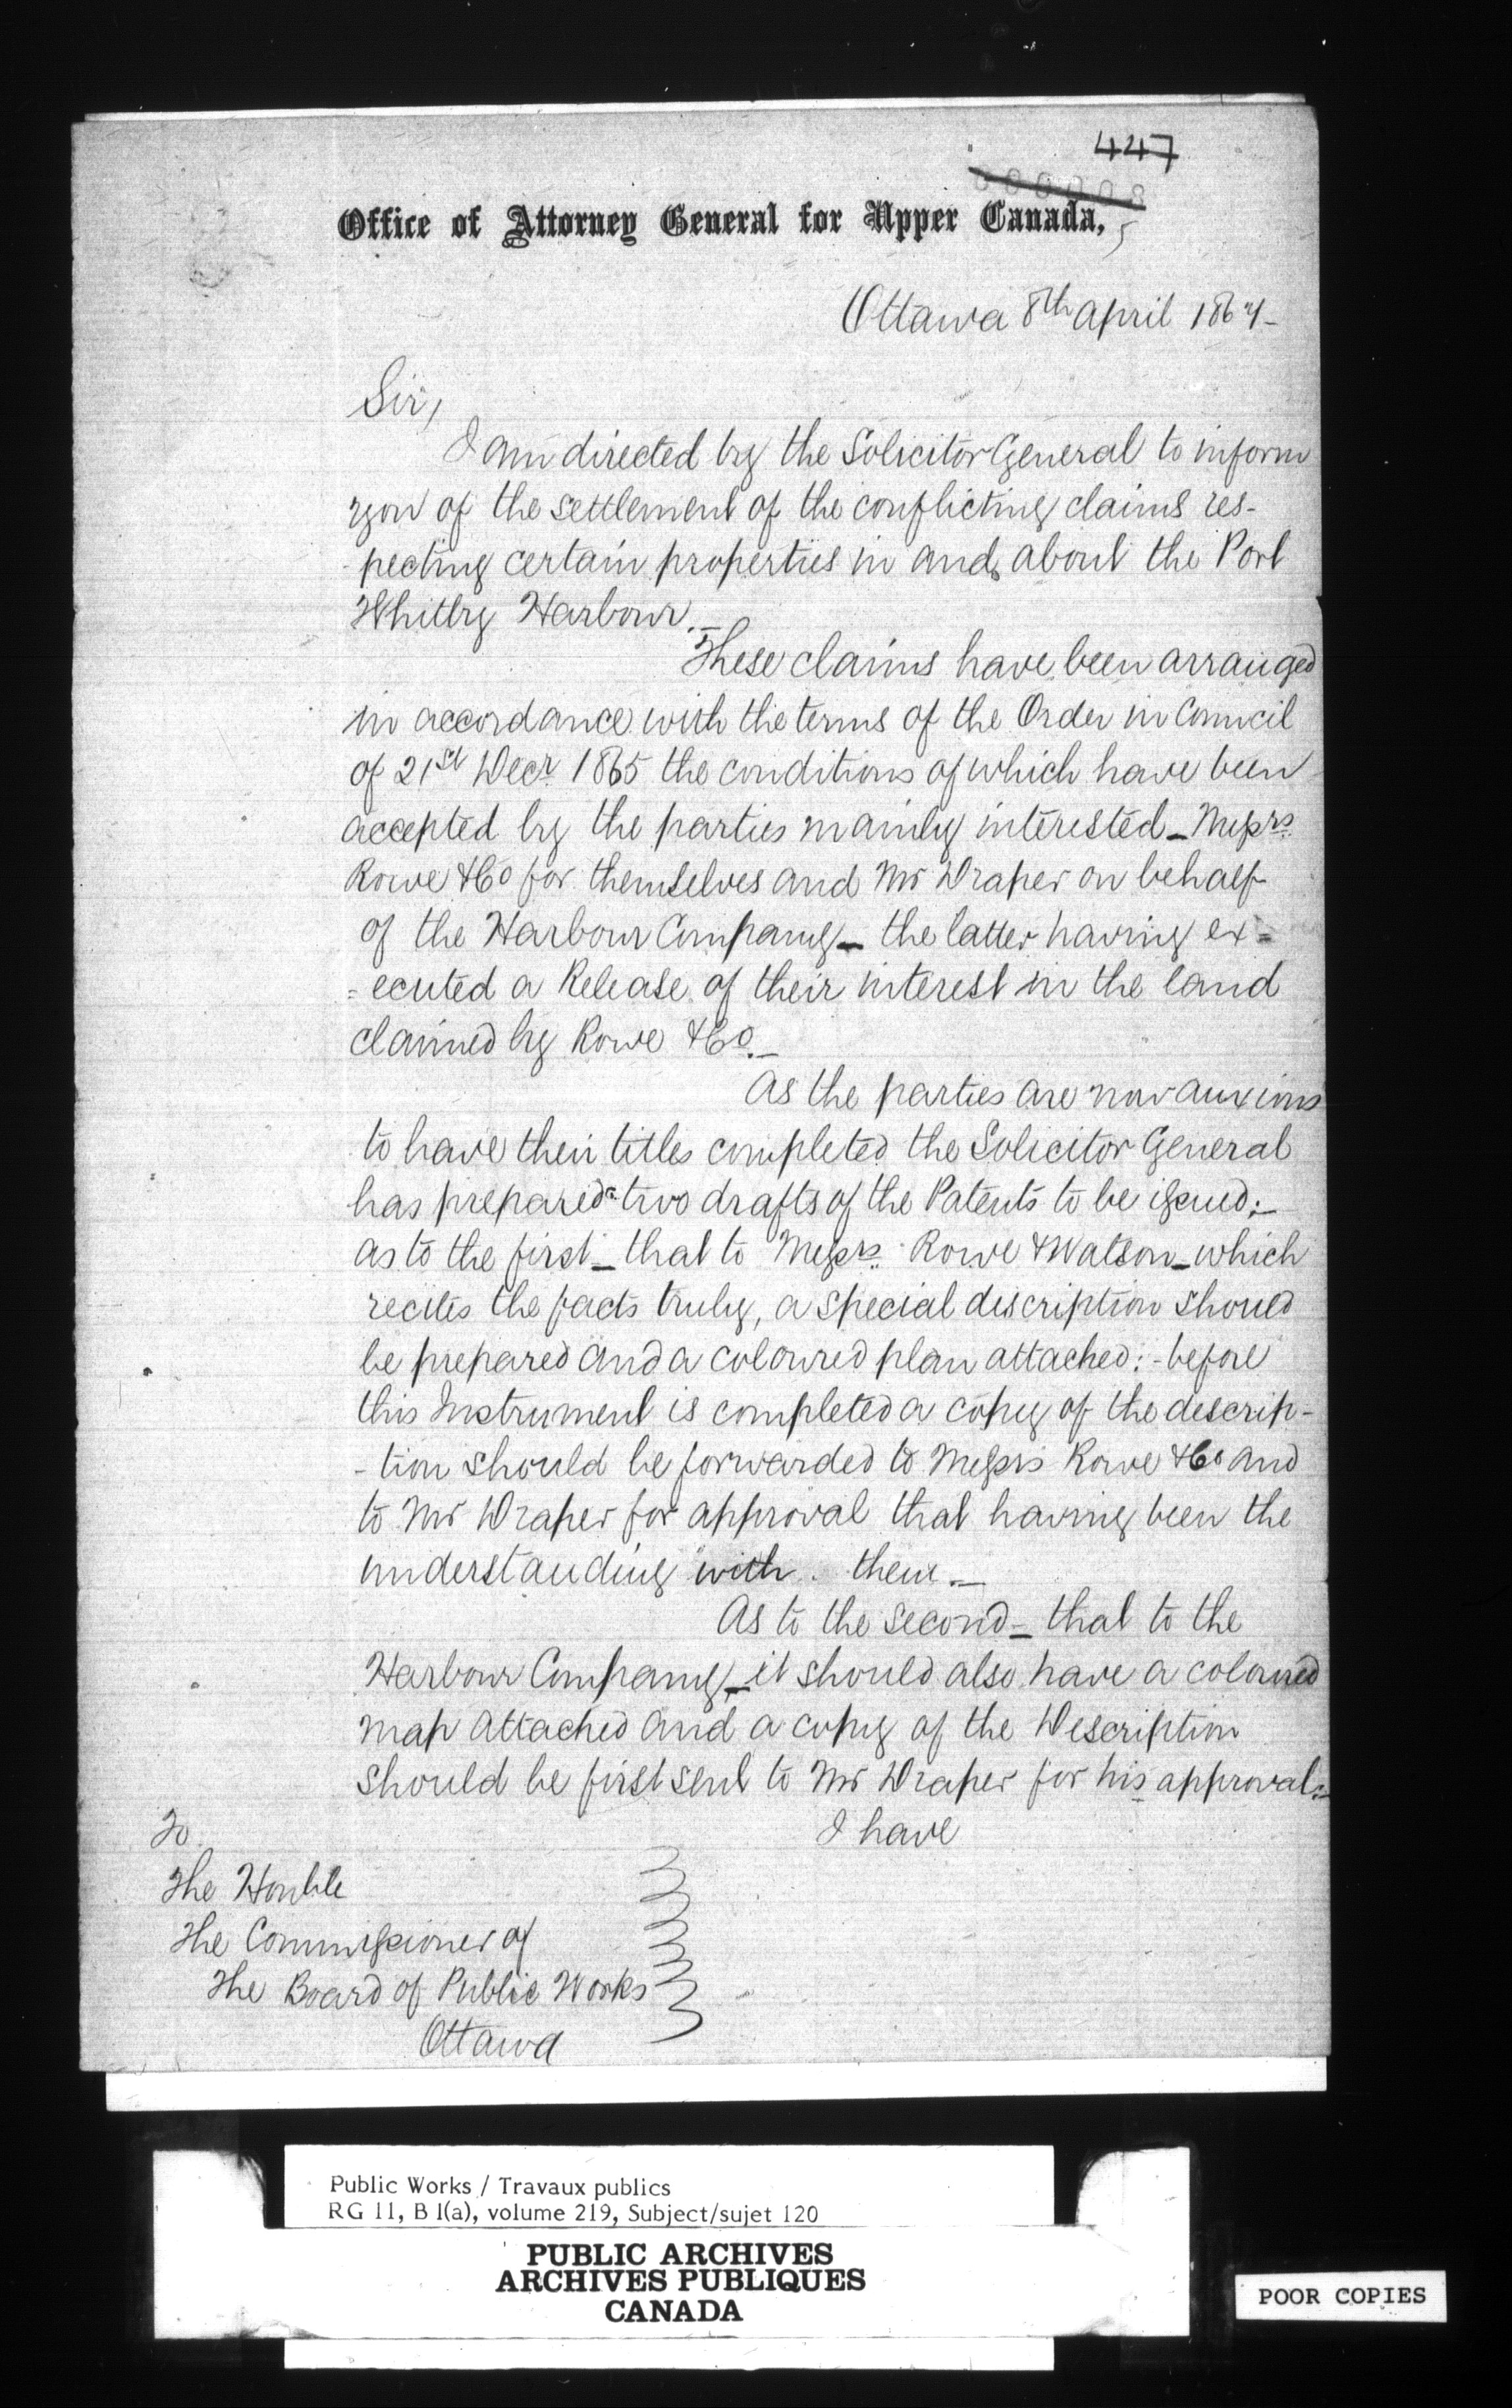 447
Office of Attorney General for Upper Canada,
Ottawa 8th April 1867-
Sir,
I am directed by the Solicitor General to inform
you of the settlement of the conflicting claims res-
-pecting certain properties in and about the Port
Whitby Harbour.-
These claims have been arranged
in accordance with the terms of the Order in Council
of 21st Decr 1865 the conditions of which have been
accepted by the parties mainly interested - Messrs
Rowe & Co for themselves and Mr Draper on behalf
of the Harbour Company - the latter having ex=
=ecuted a Release of their interest in the land
claimed by Rowe & Co.-
As the parties are now anxious
to have their titles completed the Solicitor General
has prepared two drafts of the Patents to be issued:-
as to the first - that to Messrs. Rowe & Watson - which
recites the facts truly, a special discription should
be prepared and a coloured plan attached: - before
this Instrument is completed a copy of the descrip-
-tion should be forwarded to Messrs Rowe & Co and
to Mr Draper for approval that having been the
understanding with them.-
As to the second - that to the
Harbour Company - it should also have a coloured
map attached and a copy of the Description
should be first sent to Mr Draper for his approval:-
I have
To
The Honble
The Commissioner of
The Board of Public Works
Ottawa
Public Works / Travaux publics
RG 11, B 1(a), volume 219, Subject/sujet 120
PUBLIC ARCHIVES
ARCHIVES PUBLIQUES
CANADA
POOR COPIES